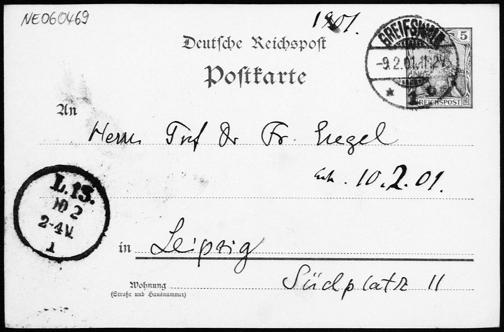 NE060469
1901.
Deutsche Reichspost
Postkarte
GREIFSWALD
-9.2.01.11-12V
* 1
5
REICHSPOST
An
Herrn Prof Dr Fr. Engel
erh. 10.2.01.
L.13.
10 2
2-4V.
1
in Leipzig
Wohnung
(Straße und Hausnummer)
Südplatz 11